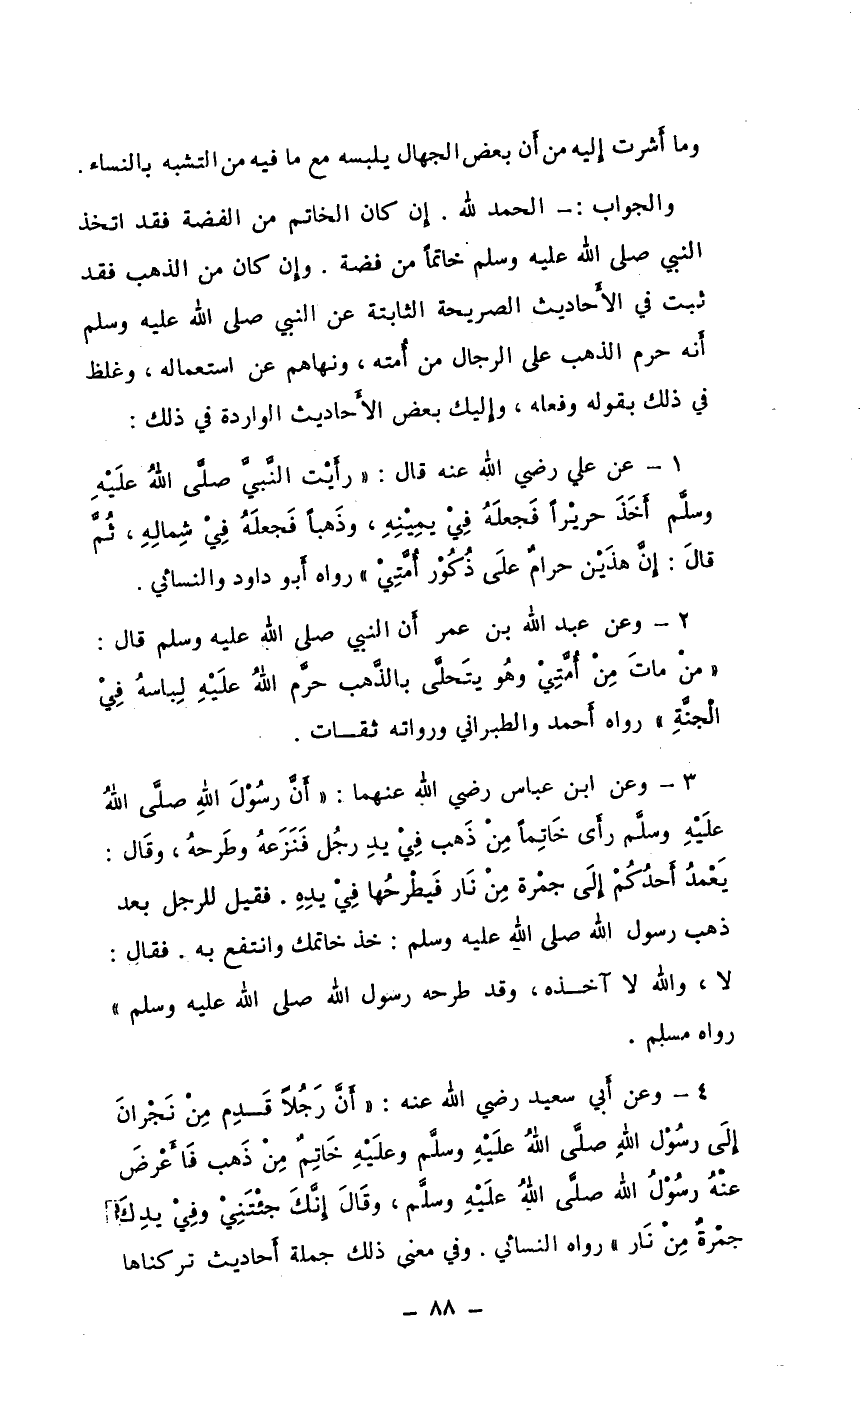 وما أشرت إليه من أن بعض الجهال يلبسه مع ما فيه من التشبه بالنساء .
والجواب :– الحمد لله . إن كان الخاتم من الفضة فقد اتخذ
النبي صلى الله عليه وسلم خاتماً من فضة . وإن كان من الذهب فقد
ثبت في الأحاديث الصريحة الثابتة عن النبي صلى الله عليه وسلم
أنه حرم الذهب على الرجال من أُمته ، ونهاهم عن استعماله ، وغلظ
في ذلك بقوله وفعله ، وإليك بعض الأحاديث الواردة في ذلك :
١ – عن علي رضي الله عنه قال : « رأَيْت النَّبيَّ صلَّى اللهُ علَيْهِ
وسلَّم أَخَذَ حريْراً فَجعلَهُ فِيْ يمِيْنِهِ ، وذَهباً فَجعلَهُ فِيْ شِمالِهِ ، ثُمَّ
قالَ : إنَّ هذَيْن حرامٌ علَى ذُكُوْر أُمَّتِيْ » رواه أبو داود والنسائي .
٢ – وعن عبد الله بن عمر أن النبي صلى الله عليه وسلم قال :
« منْ ماتَ مِنْ أُمَّتِيْ وهُو يتَحلَّى بالذَّهب حرَّم اللهُ علَيْهِ لِباسهُ فِيْ
الْجنَّةِ » رواه أحمد والطبراني ورواته ثقــات .
٣ – وعن ابن عباس رضي الله عنهما : « أَنَّ رسُوْلَ اللهِ صلَّى اللهُ
علَيْهِ وسلَّم رأَى خَاتِماً مِنْ ذَهب فِيْ يدِ رجُل فَنَزَعهُ وطَرحهُ ، وقَال :
يَعْمدُ أَحدُكُمْ إلَى جمْرة مِنْ نَار فَيطْرحُها فِيْ يدِهِ . فقيل للرجل بعد
ذهب رسول الله صلى الله عليه وسلم : خذ خاتمك وانتفع به . فقال :
لا ، والله لا آخــذه ، وقد طرحه رسول الله صلى الله عليه وسلم »
رواه مسلم .
٤ – وعن أبي سعيد رضي الله عنه : « أَنَّ رَجُلاً قَــدِم مِنْ نَجْرانَ
إلَى رسُوْل اللهِ صلَّى اللهُ علَيْهِ وسلَّم وعلَيْهِ خَاتِمٌ مِنْ ذَهب فَأَعْرضَ
عنْهُ رسُوْلُ الله صلَّى اللهُ علَيْهِ وسلَّم ، وقَالَ إنَّكَ جئْتَنِيْ وفِيْ يدِكَ
جمْرةٌ مِنْ نَار » رواه النسائي . وفي معنى ذلك جملة أحاديث تركناها
– ٨٨ –